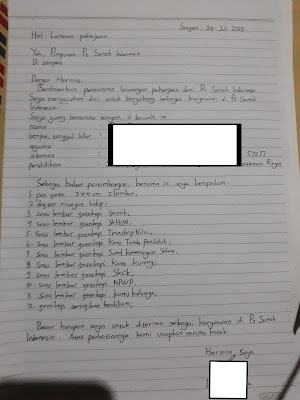 Sragen, 20 Juli 2019
Hal : Lamaran pekerjaan
Yth, Pimpinan Pt Surah Indonesia
Di tempat
Dengan Hormat,
Berdasarkan penawaran lowongan pekerjaan dari Pt Surah Indonesia
Saya mengajukan diri untuk bergabung sebagai karyawan di Pt Surah
Indonesia.
Saya yang bertanda tangan di bawah ini
nama :
tempat, tanggal lahir :
agama :
alamat : 57277
pendidikan :
Sebagai bahan pertimbangan, bersama ini saya lampirkan:
1. pas foto 3x4 cm 2 lembar;
2. daftar riwayat hidup;
3. Satu lembar fotokopi Ijazah;
4. Satu lembar fotokopi SKHUN;
5. Satu lembar fotokopi Transkrip Nilai;
6. Satu lembar fotokopi Kartu Tanda penduduk;
7. Satu lembar fotokopi Surat keterangan Sehat;
8. Satu lembar fotokopi Kartu Kuning;
9. Satu lembar fotokopi Skck;
10. Satu lembar fotokopi NPWP;
11. Satu lembar fotokopi kartu keluarga;
12. fotokopi sertifikat keahlian;
Besar harapan saya untuk diterima sebagai karyawan di Pt Surah
Indonesia. Atas perhatiannya kami ucapkan terima kasih.
Hormat Saya,